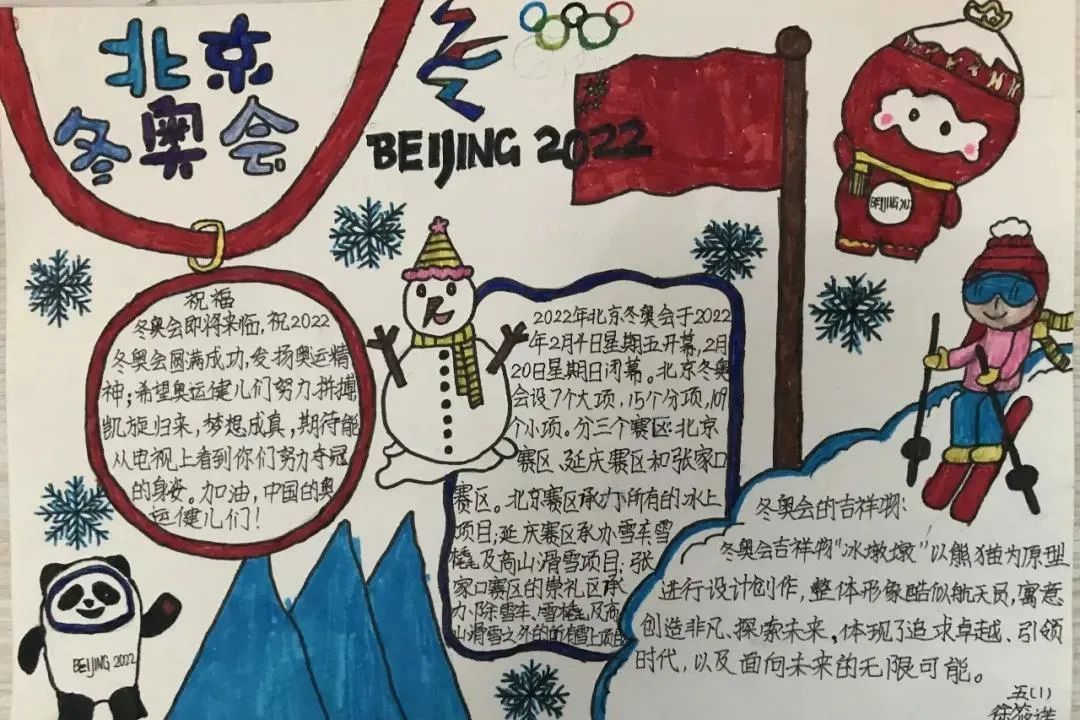 北京
冬奥会
BEIJING 2022
BEIJING 202
祝福
冬奥会即将来临，祝2022
冬奥会圆满成功，发扬奥运精
神；希望奥运健儿们努力拼搏
凯旋归来，梦想成真，期待能
从电视上看到你们努力夺冠
的身姿。加油，中国的奥
运健儿们！
2022年北京冬奥会于2022
年2月4日星期五开幕，2月
20日星期日闭幕。北京冬奥
会设7个大项，15个分项，109
个小项。分三个赛区：北京
赛区、延庆赛区和张家口
赛区。北京赛区承办所有的冰上
项目；延庆赛区承办雪车雪
橇及高山滑雪项目；张
家口赛区的崇礼区承
办除雪车、雪橇及高
山滑雪之外的所有雪上项目
冬奥会的吉祥物：
冬奥会吉祥物“冰墩墩”以熊猫为原型
进行设计创作，整体形象酷似航天员，寓意
创造非凡、探索未来，体现了追求卓越、引领
时代，以及面向未来的无限可能。
BEIJING 2022
五(1)
徐
诺